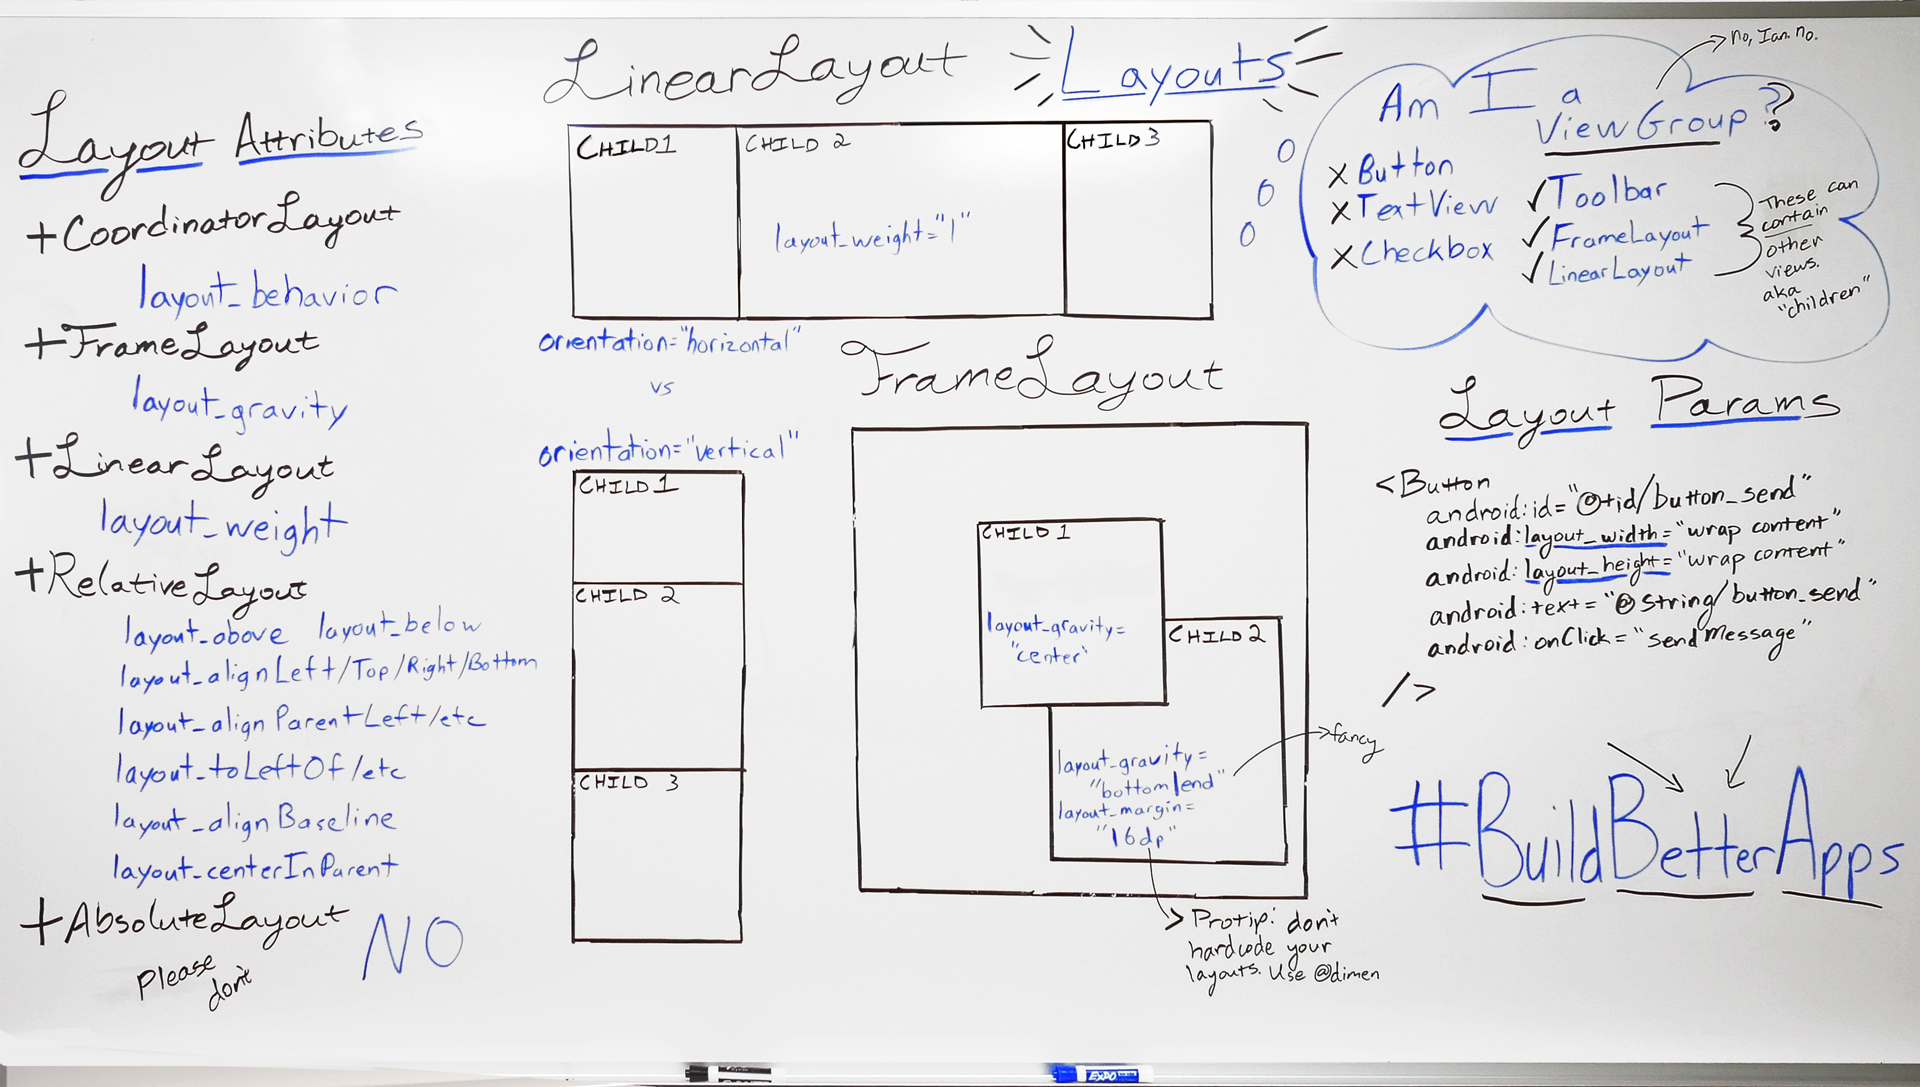 Layout Attributes
+CoordinatorLayout
layout_behavior
+FrameLayout
layout_gravity
+LinearLayout
layout_weight
+RelativeLayout
layout_above layout_below
layout_alignLeft/Top/Right/Bottom
layout_alignParentLeft/etc
layout_toLeftOf/etc
layout_alignBaseline
layout_centerInParent
+AbsoluteLayout
NO
Please
don't
LinearLayout
Layouts
CHILD1
CHILD 2
CHILD 3
layout_weight="1"
orientation="horizontal"
vs
orientation="vertical"
CHILD 1
CHILD 2
CHILD 3
FrameLayout
CHILD 1
layout_gravity=
"center"
CHILD 2
layout_gravity=
"bottom|end"
layout_margin=
"16dp"
fancy
Protip: don't
hardcode your
layouts. Use @dimen
no, Ian. no.
Am I a
ViewGroup?
X Button
X TextView
X Checkbox
✓ Toolbar
✓ FrameLayout
✓ LinearLayout
These can
contain
other
views.
aka
"children"
Layout Params
<Button
android:id="@+id/button_send"
android:layout_width="wrap content"
android:layout_height="wrap content"
android:text="@string/button_send"
android:onClick="sendMessage"
/>
#BuildBetterApps
EXPO